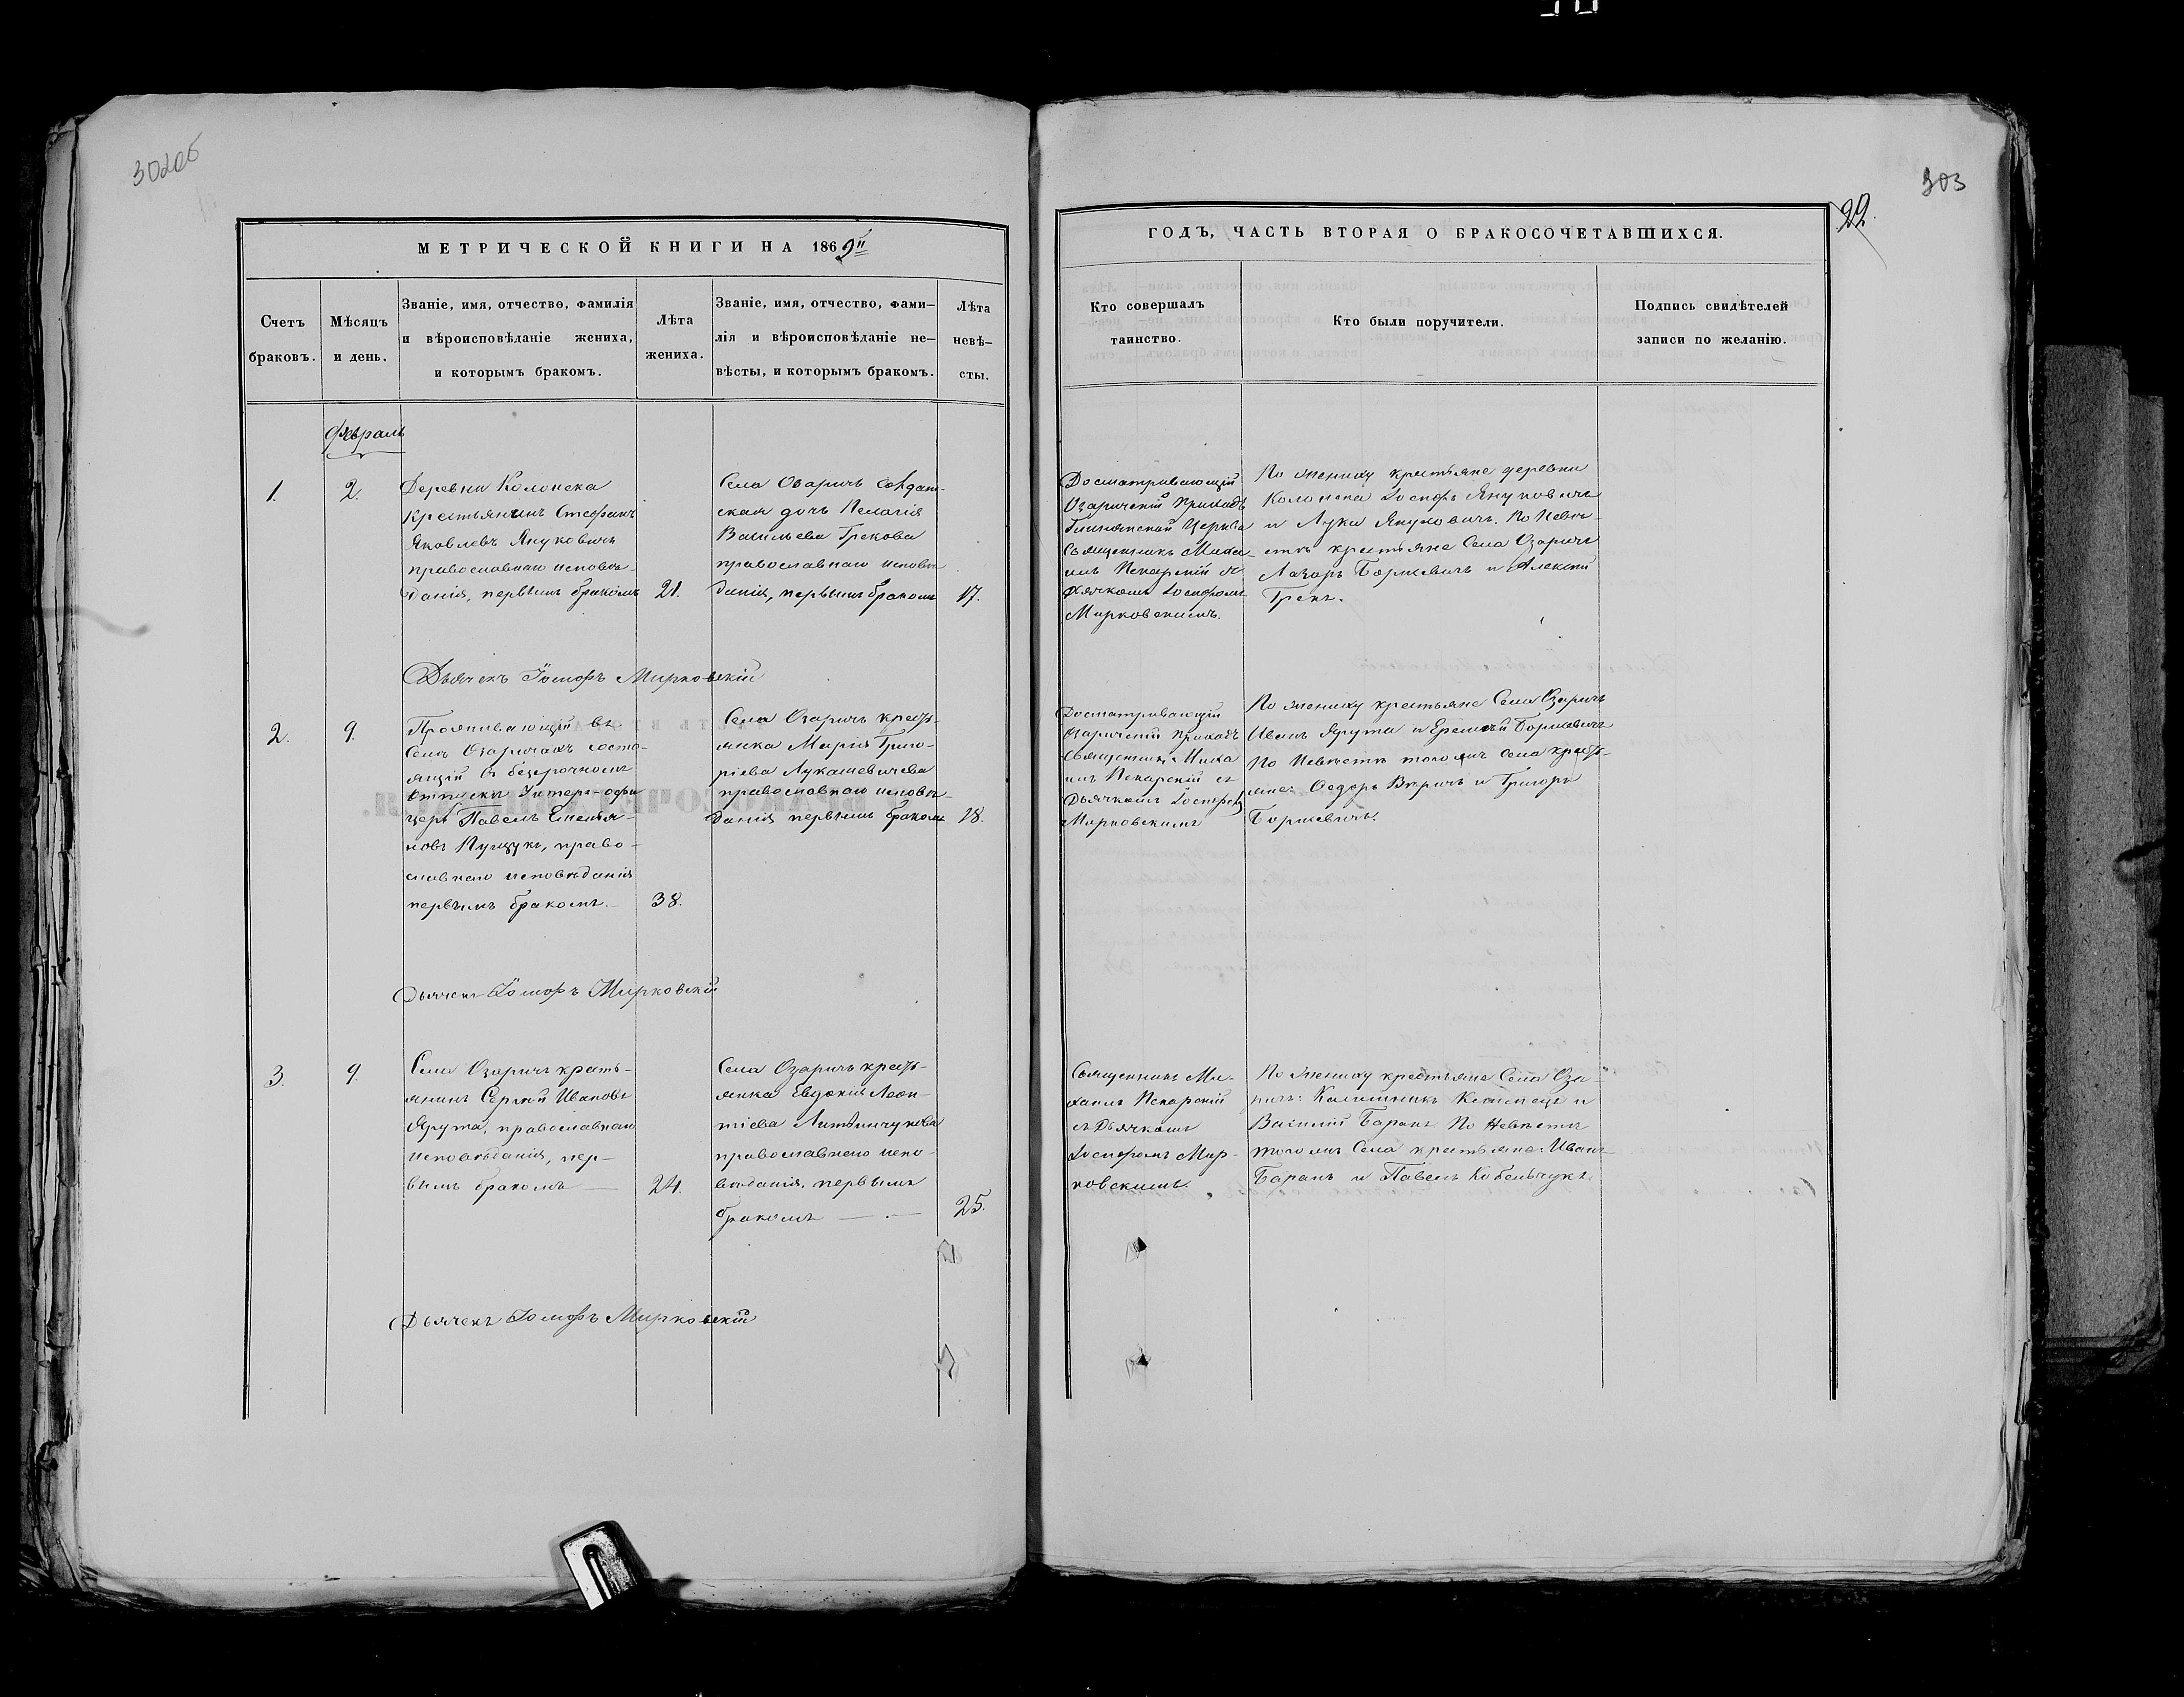 302об
МЕТРИЧЕСКОЙ КНИГИ НА 1869й
Счетъ
браковъ.
Мѣсяцъ
и день.
Званіе, имя, отчество, фамилія
и вѣроисповѣданіе жениха,
и которымъ бракомъ.
Лѣта
жениха.
Званіе, имя, отчество, фами–
лія и вѣроисповѣданіе не–
вѣсты, и которымъ бракомъ.
Лѣта
невѣ–
сты.
Февраль
1.
2.
Деревни Колонска
Крестьянинъ Стефанъ
Яковлевъ Януковичъ
православнаго исповѣ-
данія, первымъ бракомъ
21.
Села Озаричъ Солдат-
ская дочь Пелагія
Васильева Грекова
православнаго исповѣ
данія, первымъ бракомъ
17.
Дьячекъ Іосифъ Мирковскій
2.
9.
Проживающій въ
Селѣ Озаричахъ состо-
ящій въ безсрочномъ
Отпуску Унтеръ-офи
церъ Павелъ Емелья-
новъ Пущукъ, право-
славнаго исповѣданія
первымъ бракомъ.
38.
Села Озаричъ кресть-
янка Марія Григо-
ріева Лукашевичева
православнаго исповѣ-
данія первымъ бракомъ
18.
Дьячекъ Іосифъ Мирковскій
3.
9.
Села Озаричъ кресть-
янинъ Сергій Ивановъ
Ярута, православнаго
исповѣданія, пер-
вымъ бракомъ —
24.
Села Озаричъ кресть-
янка Евдокія Леон-
тіева Литвинчукова
православнаго испо-
вѣданія, первымъ
бракомъ —
25.
Дьячекъ Іосифъ Мирковскій
303
22.
ГОДЪ, ЧАСТЬ ВТОРАЯ О БРАКОСОЧЕТАВШИХСЯ.
Кто совершалъ
таинство.
Кто были поручители.
Подпись свидѣтелей
записи по желанію.
Досматривающій
Озаричскій Приходъ
Глинянской Церкви
Священникъ Миха-
илъ Пекарскій съ
Дьячкомъ Іосифомъ
Мирковскимъ.
По жениху крестьяне деревни
Колонска Іосифъ Януковичъ
и Лука Януковичъ. По Невѣ-
стѣ крестьяне Села Озаричъ
Лазарь Боришевичъ и Алексій
Грекъ.
Досматривающій
Озаричскій Приходъ
Священникъ Миха
илъ Пекарскій съ
Дьячкомъ Іосифомъ
Мирковскимъ
По жениху крестьяне Села Озаричъ
Иванъ Ярута и Еремѣй Боришевичъ
По Невѣстѣ тогожъ Села кресть-
яне: Ѳедоръ и Григорій
Боришевичъ.
Священникъ Ми-
хаилъ Пекарскій
съ Дьячкомъ
Іосифомъ Мир-
ковскимъ.
По жениху крестьяне Села Оза-
ричъ: и
Василій Баранъ. По Невѣстѣ
тогожъ Села крестьяне: Иванъ
Баранъ и Павелъ Кобельчукъ.